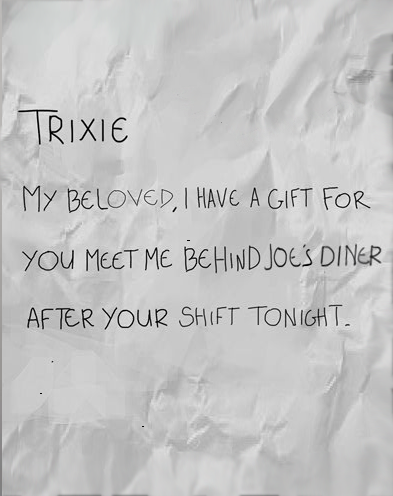 TRIXIE
MY BELOVED, I HAVE A GIFT FOR
YOU MEET ME BEHIND JOE'S DINER
AFTER YOUR SHIFT TONIGHT.